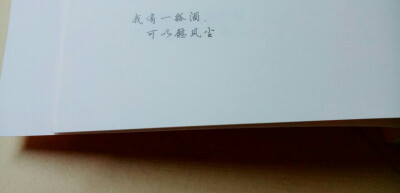 我有一瓢酒，
可以慰风尘